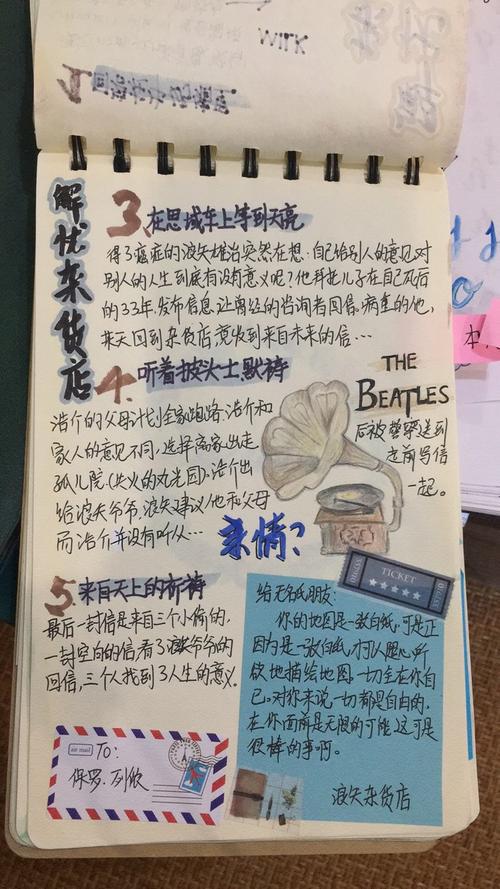 WILK
解忧杂货店
3. 在思域车上等到天亮
得了癌症的浪矢雄治突然在想：自己给别人的意见对
别人的人生到底有没有意义呢？他拜托儿子在自己死后
的33年，发布信息，让曾经的咨询者回信。病重的他，
某天回到杂货店，竟收到来自未来的信…
4. 听着披头士，默祷
THE
BEATLES
浩介的父母计划全家跑路，浩介和
家人的意见不同，选择离家出走
后被警察送到
孤儿院（失火的丸光园）。浩介出
走前写信
给浪矢爷爷，浪矢建议他和父母
一起。
而浩介并没有听从…
亲情？
TICKET
5. 来自天上的祈祷
最后一封信是来自三个小偷的，
一封空白的信，看了浪矢爷爷的
回信，三个人找到了人生的意义。
给无名氏朋友：
你的地图是一张白纸，可是正
因为是一张白纸，才可以随心所
欲地描绘地图，一切全在你自
己。对你来说，一切都是自由的，
在你面前是无限的可能，这可是
很棒的事啊。
浪矢杂货店
air mail
TO：
保罗·列侬